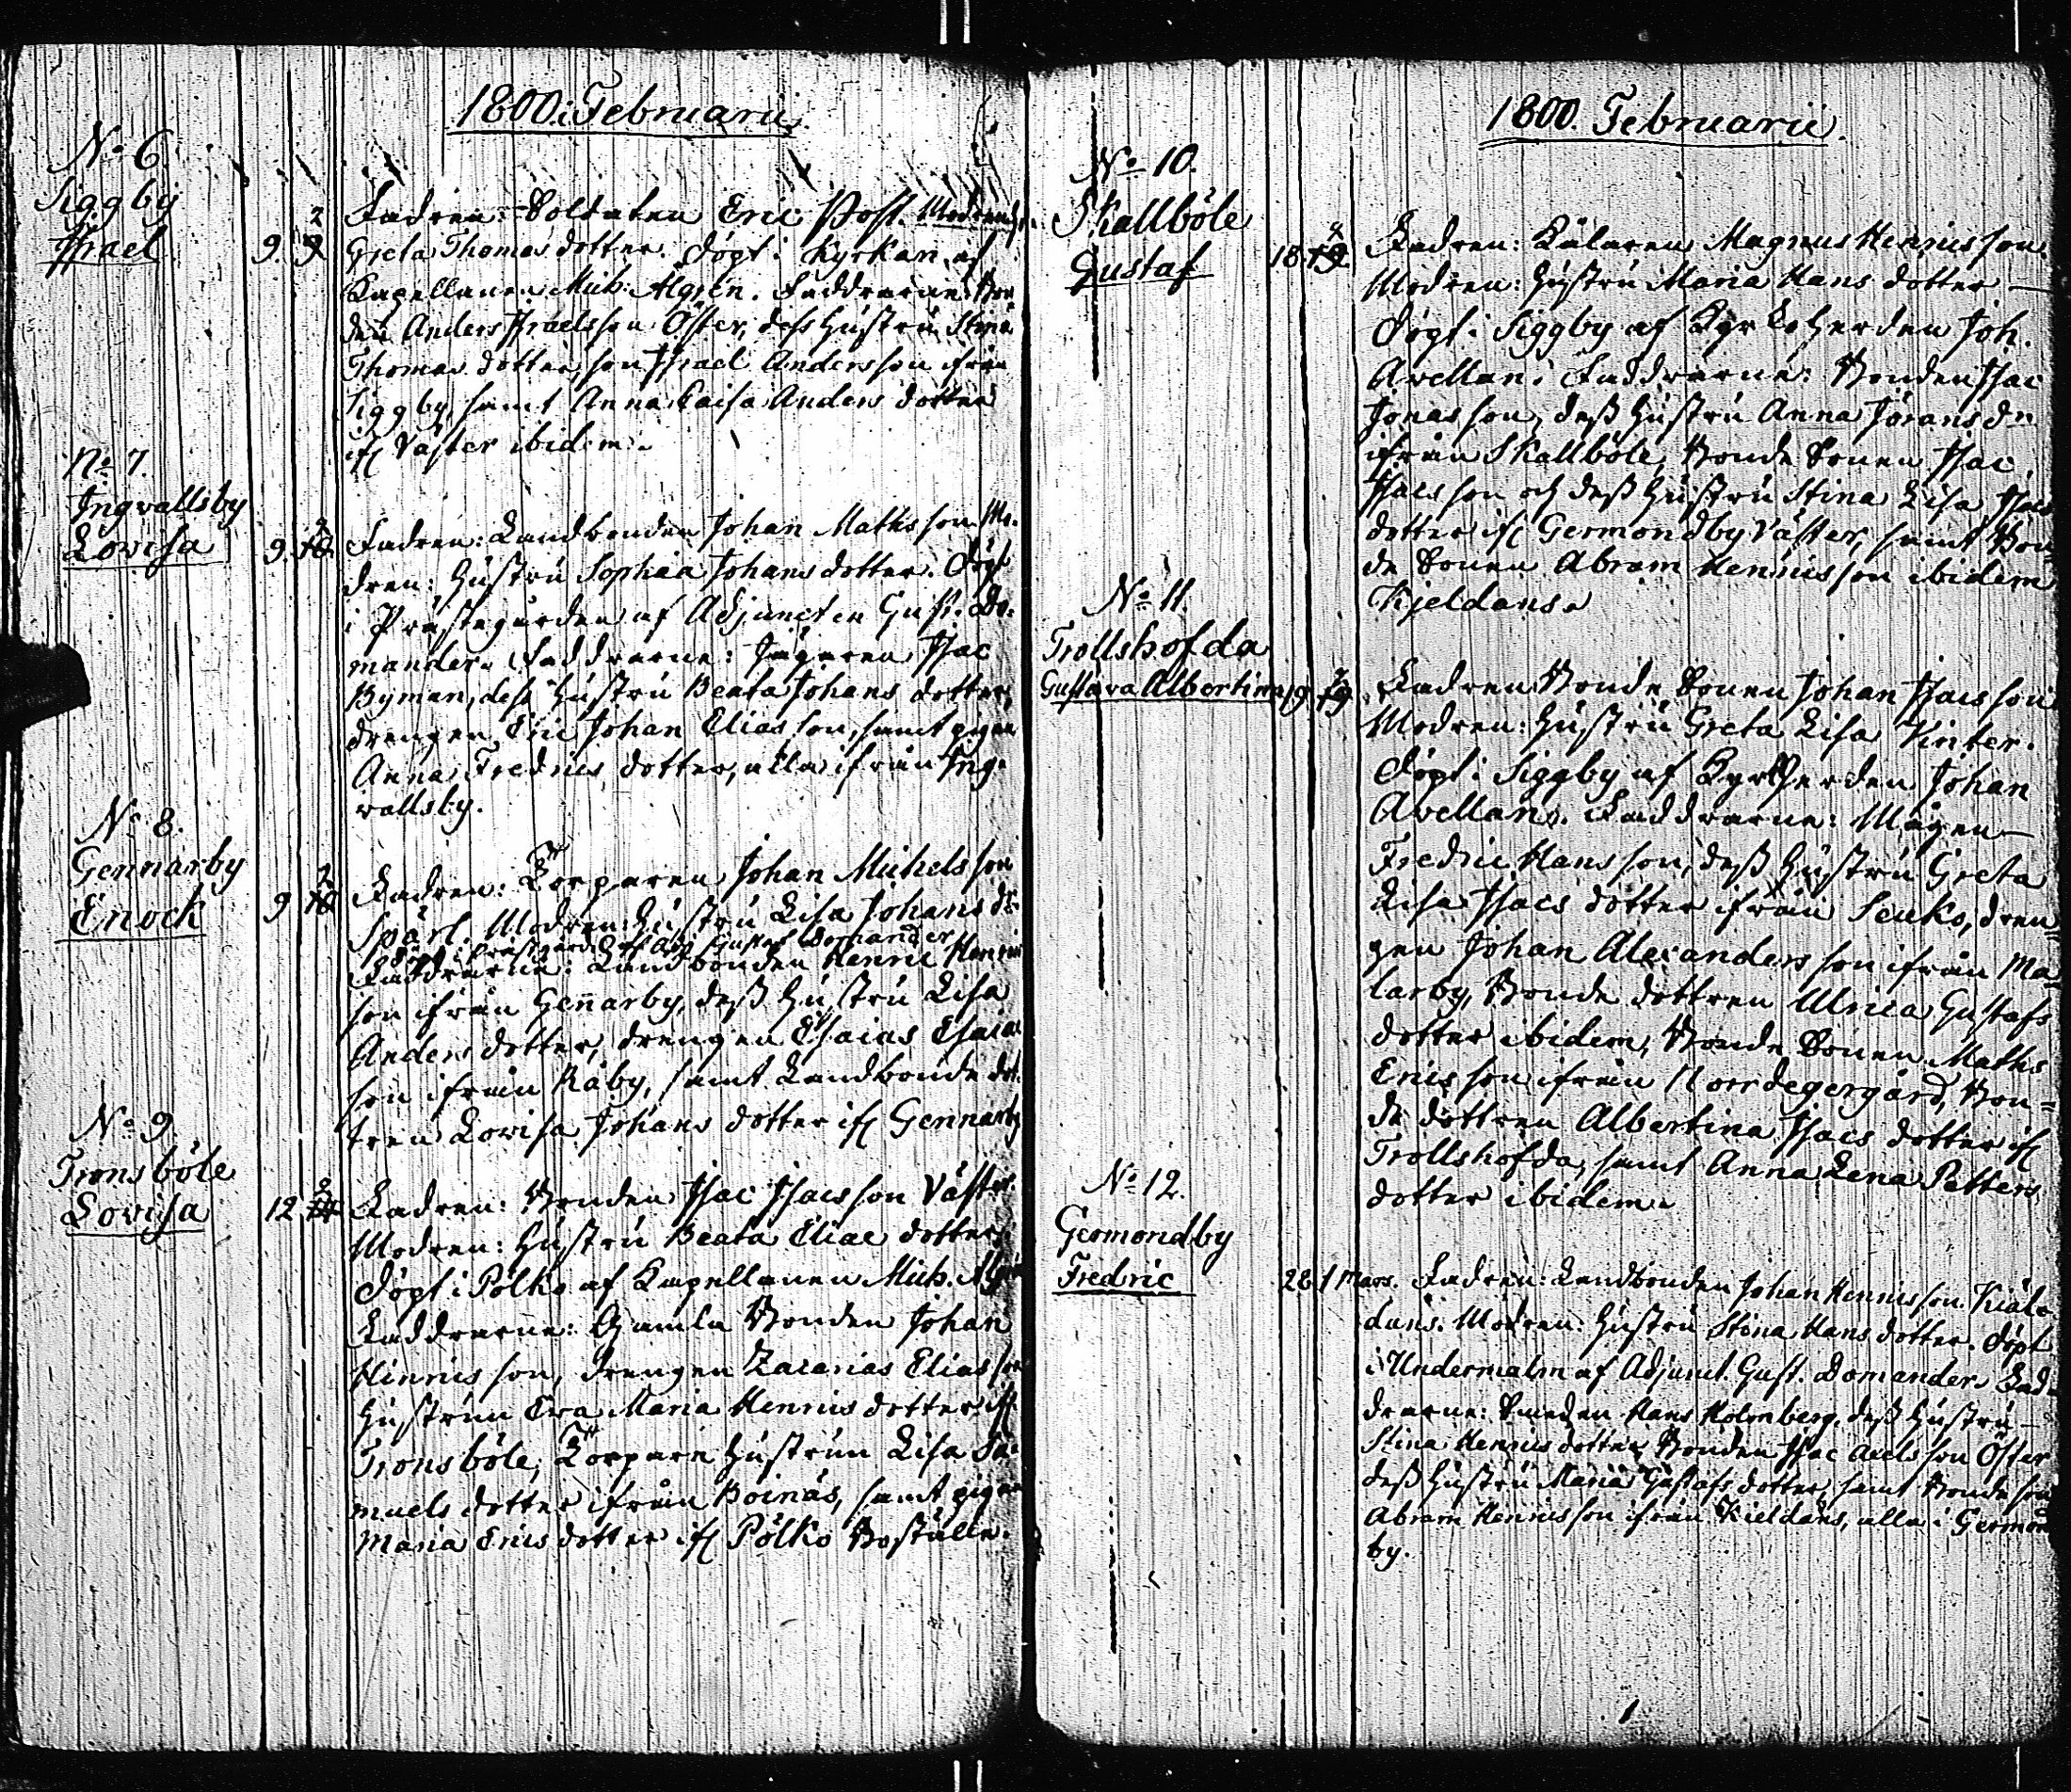 1800. Februarii.
No 6.
Siggby
Israel
9. 9/2
Fadren: Soldaten Eric Post. Modren
Greta Thomas dotter. Döpt i Kyrkan af
Capellanen Mich: Algren. Faddrarne: Bon
den Anders Israelsson Öster, dess hustru Stina
Thomas dotter, son Israel Andersson ifrån
Siggby, samt Anna Caisa Anders dotter
ifr Väster ibidem.
No 7.
Ingvallsby
Lovisa
9. 10/2
Fadren: Landbonden Johan Mathsson. Mo-
dren: hustru Sophia Johans dotter. Döpt
i Prästegården af Adjuncten Gust. Do-
mander. Faddrarne: Jägaren Isac
Byman, dess hustru Beata Johans dotter,
drengen Eric Johan Eliasson, samt pigan
Anna Fredrics dotter, alla ifrån Ing-
vallsby.
No 8.
Gennarby
Enock
9 10/2
Fadren: Torparen Johan Michelsson
Spärl. Modren: hustru Lisa Johans dr
Döpt i Prästgård. af Adj. Gustaf Domander
Faddrarne: Landbonden Henric Henrics
son ifrån Gennarby, dess hustru Lisa
Anders dotter, drengen Esaias Esaias
son ifrån Råby, samt Landbonde dot-
tren Lovisa Johans dotter ifr Gennarby
No 9
Tronsböle
Lovisa
12 /2
Fadren: Bonden Isac Isacsson Väster.
Modren: hustru Beata Eliae dotter.
Döpt i Pölko af Capellanen Mich. Algren
Faddrarne: Gamla Bonden Johan
Hinricsson, drengen Zacarias Eliasson
hustrun Eva Maria Henrics dotter ifr
Tronsböle, Torpare hustrun Lisa Sa-
muels dotter ifrån Boinäs, samt pigan
Maria Erics dotter ifr Pölko Boställe.
1800. Februarii.
No 10.
Skallböle
Gustaf
18. 19/2
Fadren: Magnus Henricsson.
Modren: hustru Maria Hans dotter —
Döpt i Siggby af Kyrkoherden Joh.
Avellan. Faddrarne: Bonden Isac
Jonasson, dess hustru Anna Jörans dr
ifrån Skallböle, Bonde Sonen Isac
Isacsson och dess hustru Stina Lisa Isacs
dotter ifr Germondby Väster, samt Bon
de Sonen Abram Henricsson ibidem
Kjeldans.
No 11.
Trollshofda
Gustava Albertina
19 19/2
Fadren Bonde Sonen Johan Isacsson
Modren: hustru Greta Lisa Vinter.
Döpt i Siggby af Kyrkherden Johan
Avellan. Faddrarne: Mågen —
Fredric Hansson, dess hustru Greta
Lisa Isacs dotter ifrån Seuko, dren
gen Johan Alexandersson ifrån Ma
larby, Bonde dottren Ulrica Gustafs
dotter ibidem, Bonde Sonen Maths
Ericsson ifrån Norrdegergård, Bon=
de dottren Albertina Isacs dotter ifr
Trollshofda, samt Anna Lena Petters
dotter ibidem.
No 12.
Germondby
Fredric
28. 1 Mars.
Fadren: Landbonden Johan Henricsson Kiäl-
dans. Modren: hustru Stina Hans dotter. Döpt
i Undermalm af Adjunct. Gust. Domander. Fad-
drarne: Smeden Hans Holmberg, dess hustru —
Stina Henrics dotter, Bonden Isac Axelsson Öster
dess hustru Maria Gustafs dotter, samt Bonde son
Abram Henricsson ifrån Kieldans, alla i Germond
by.